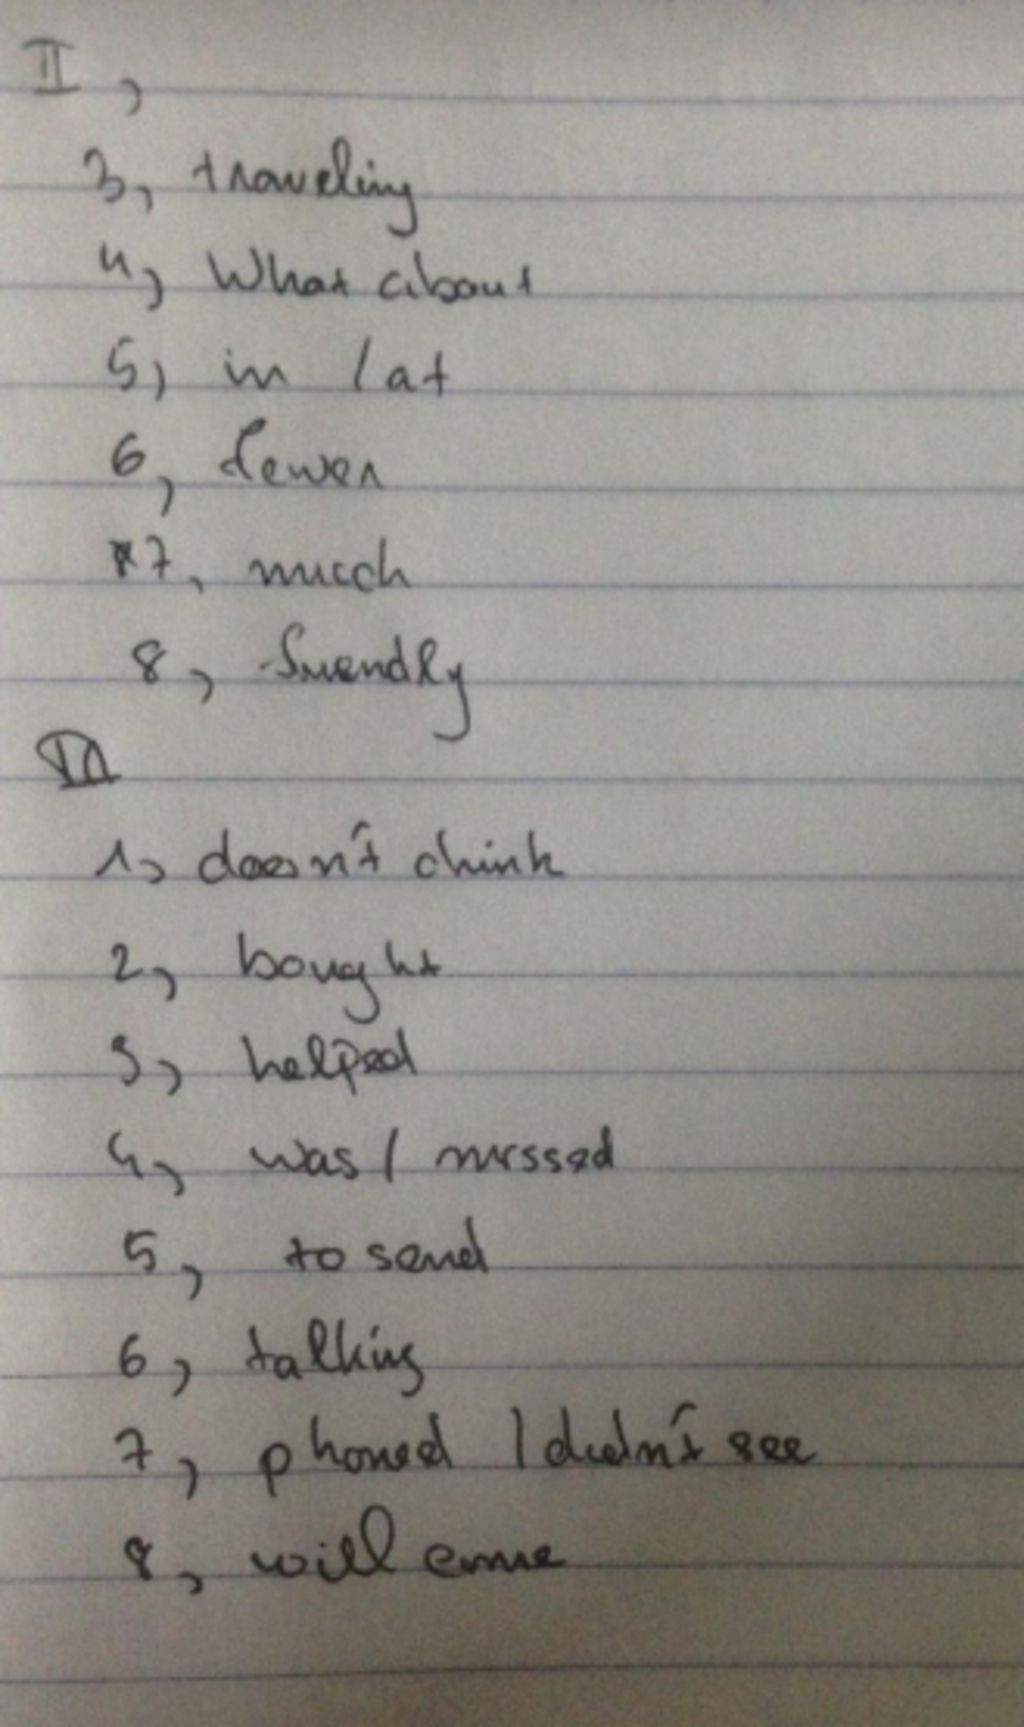 II,
3, traveling
4, What about
5, in / at
6, fewer
7, much
8, friendly
1, doesn't
2, bought
3, helped
4, was / missed
5, to send
6, talking
7, phoned / didn't see
8, will